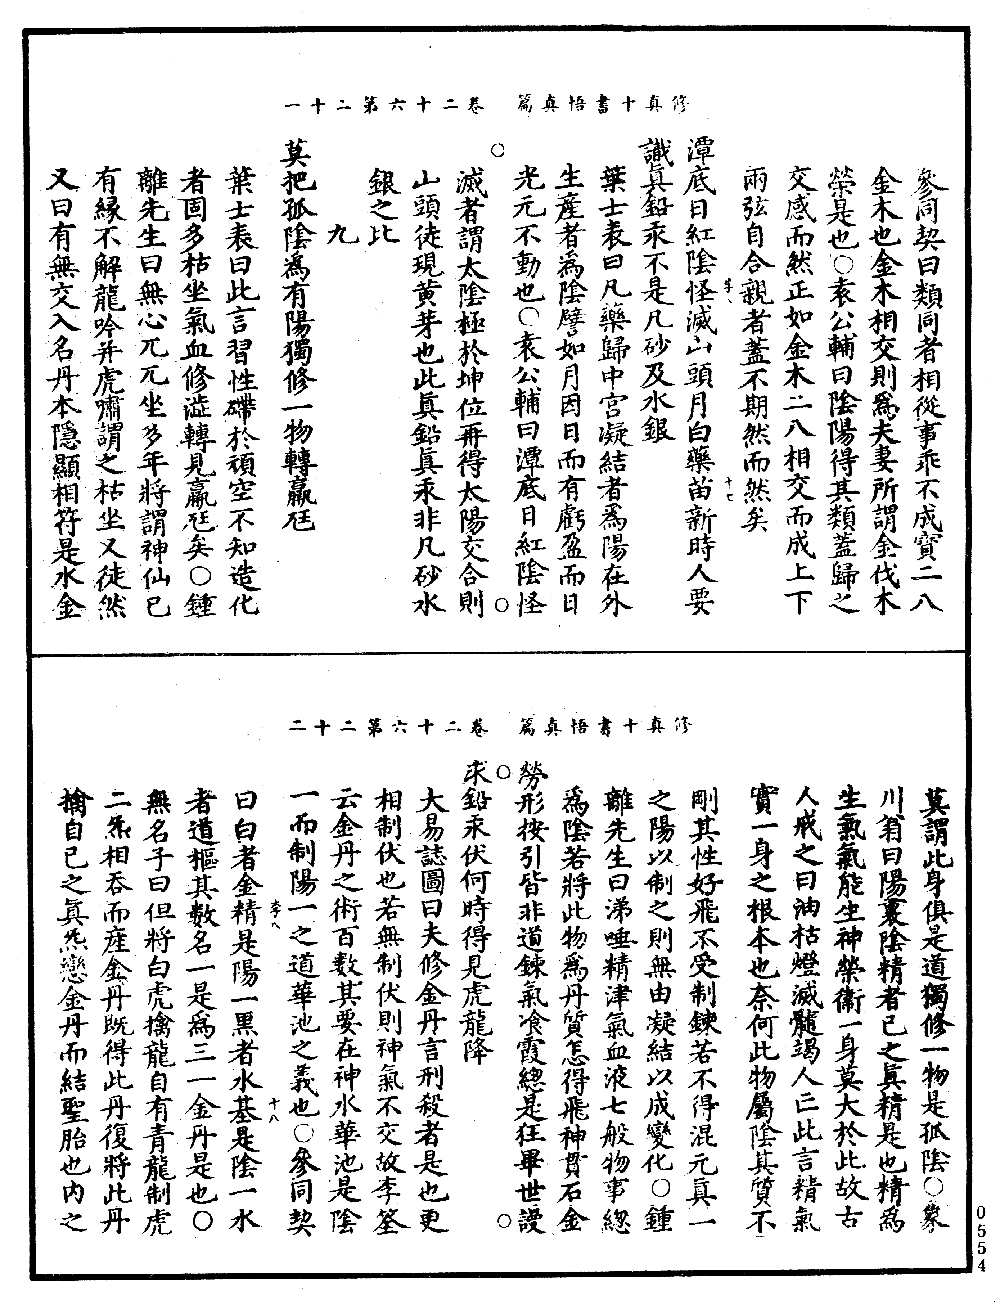 修真十書悟真篇　卷二十六第二十一
參同契曰類同者相從事乖不成寶二八
金木也金木相交則爲夫妻所謂金伐木
榮是也○袁公輔曰陰陽得其類蓋歸之
交感而然正如金木二八相交而成上下
兩弦自合親者蓋不期然而然矣
潭底日紅陰怪滅山頭月白藥苗新時人要
李八
十七
識眞鉛汞不是凡砂及水銀
葉士表曰凡藥歸中宮凝結者爲陽在外
生產者爲陰譬如月因日而有虧盈而日
光元不動也○袁公輔曰潭底日紅陰怪
滅者謂太陰極於坤位再得太陽交合則
山頭徒現黃芽也此眞鉛眞汞非凡砂水
銀之比
九
莫把孤陰爲有陽獨修一物轉羸尫
葉士表曰此言習性礴於頑空不知造化
者固多枯坐氣血修澁轉見羸尫矣○鍾
離先生曰無心兀兀坐多年將謂神仙已
有緣不解龍吟并虎嘯謂之枯坐又徒然
又曰有無交入名丹本隱顯相符是水金
修真十書悟真篇　卷二十六第二十二
莫謂此身俱是道獨修一物是孤陰○象
川翁曰陽裏陰精者已之眞精是也精爲
生氣氣能生神榮衞一身莫大於此故古
人戒之曰油枯燈滅髓竭人亡此言精氣
實一身之根本也奈何此物屬陰其質不
剛其性好飛不受制鍊若不得混元真一
之陽以制之則無由凝結以成變化○鍾
離先生曰涕唾精津氣血液七般物事總
爲陰若將此物爲丹質怎得飛神貫石金
勞形按引皆非道鍊氣飡霞總是狂畢世謾
求鉛汞伏何時得見虎龍降
大易誌圖曰夫修金丹言刑殺者是也更
相制伏也若無制伏則神氣不交故李筌
云金丹之術百數其要在神水華池是陰
一而制陽一之道華池之義也○參同契
李八
十八
曰白者金精是陽一黑者水基是陰一水
者道樞其數名一是爲三一金丹是也○
無名子曰但將白虎擒龍自有青龍制虎
二炁相吞而産金丹既得此丹復將此丹
擒自已之真炁戀金丹而結聖胎也内之
0554